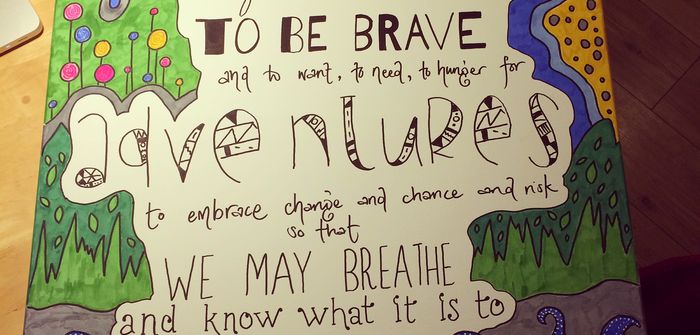 TO BE BRAVE
and to want, to need, to hunger for
adventures
to embrace change and chance and risk
so that
WE MAY BREATHE
and know what it is to